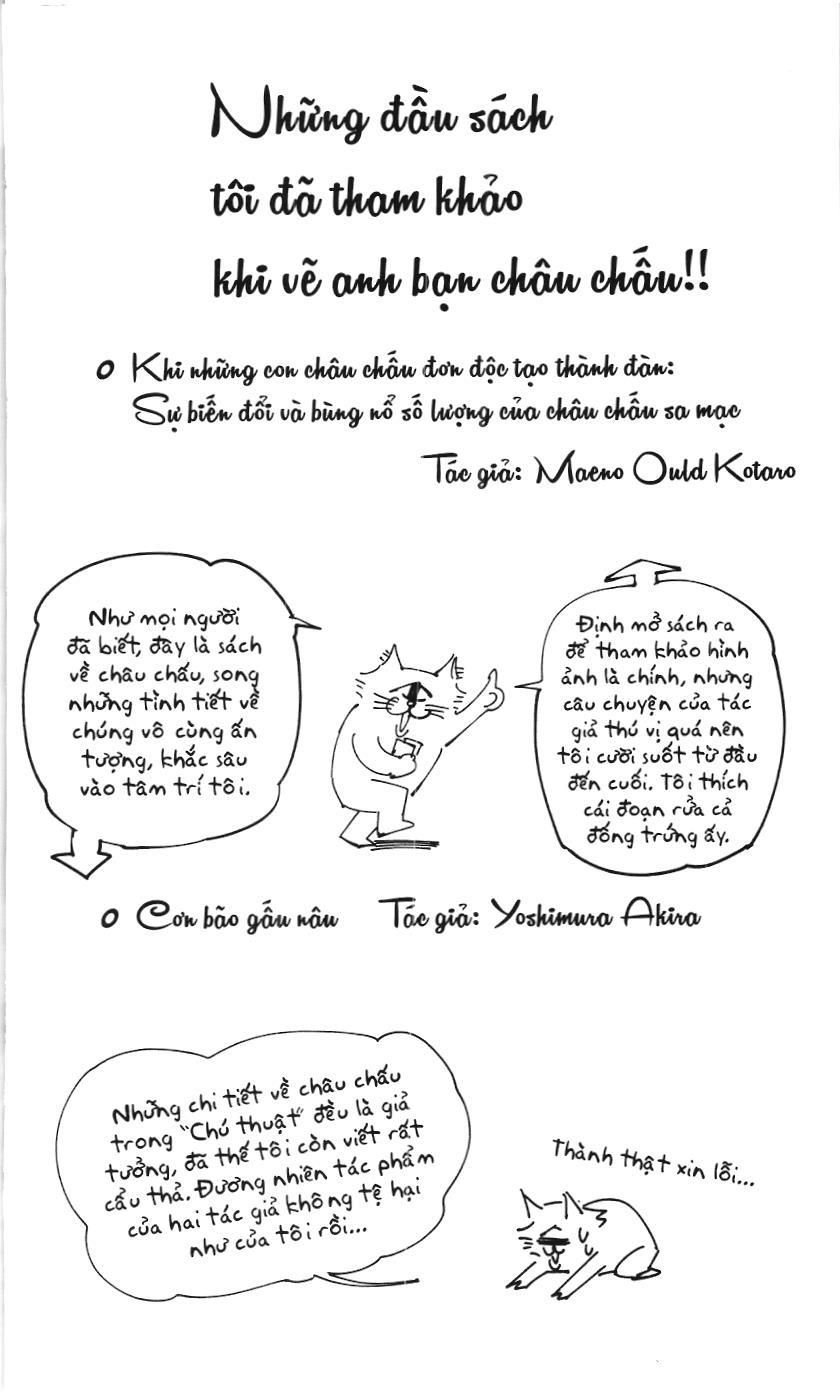 Những đầu sách
tôi đã tham khảo
khi vẽ anh bạn châu chấu!!
Khi những con châu chấu đơn độc tạo thành đàn:
Sự biến đổi và bùng nổ số lượng của châu chấu sa mạc
Tác giả: Maeno Ould Kotaro
Như mọi người
đã biết, đây là sách
về châu chấu, song
những tình tiết về
chúng vô cùng ấn
tượng, khắc sâu
vào tâm trí tôi.
Định mở sách ra
để tham khảo hình
ảnh là chính, nhưng
câu chuyện của tác
giả thú vị quá nên
tôi cười suốt từ đầu
đến cuối. Tôi thích
cái đoạn rửa cả
đống trứng ấy.
Cơn bão gấu nâu Tác giả: Yoshimura Akira
Những chi tiết về châu chấu
trong "Chú thuật" đều là giả
tưởng, đã thế tôi còn viết rất
cẩu thả. Đương nhiên tác phẩm
của hai tác giả không tệ hại
như của tôi rồi...
Thành thật xin lỗi...